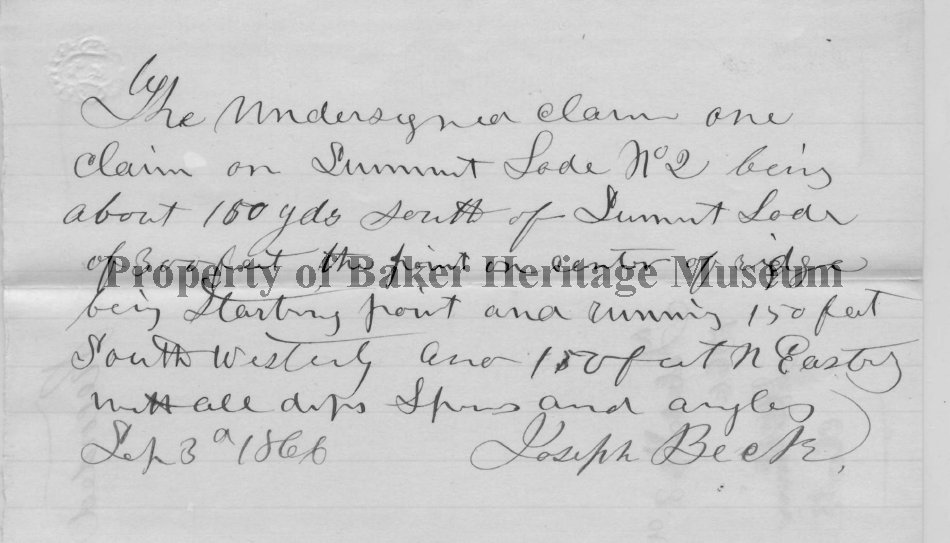 The Undersigned claim one
claim on Summit Lode No 2 being
about 150 yds South of Summit Lode
of 300 feet the point on center of ridge
Property of Baker Heritage Museum
being Starting point and running 150 feet
South Westerly and 150 feet N Easterly
with all dips Spurs and angles
Sep 3d 1866 Joseph Beck